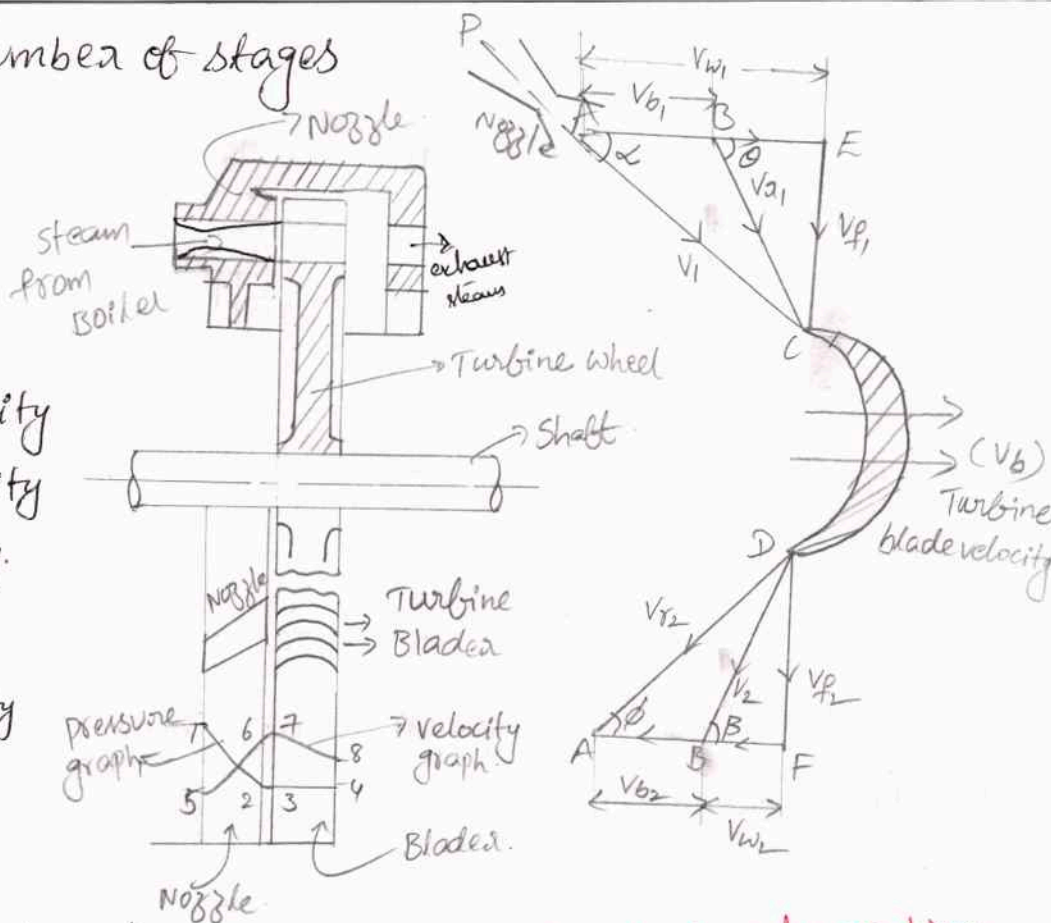 mber of stages
Nozzle
steam
from
Boiler
exhaust
steam
Turbine wheel
Shaft
ity
ity
Nozzle
Turbine
Blades
y
pressure
graph
1
6
7
8
velocity
graph
5
2
3
4
Blades.
Nozzle
P
Nozzle
A
Vw1
Vb1
B
E
α
θ
Vr1
V1
Vf1
C
(Vb)
Turbine
blade velocity
D
Vr2
V2
Vf2
A
ϕ
B
β
F
Vb2
Vw2